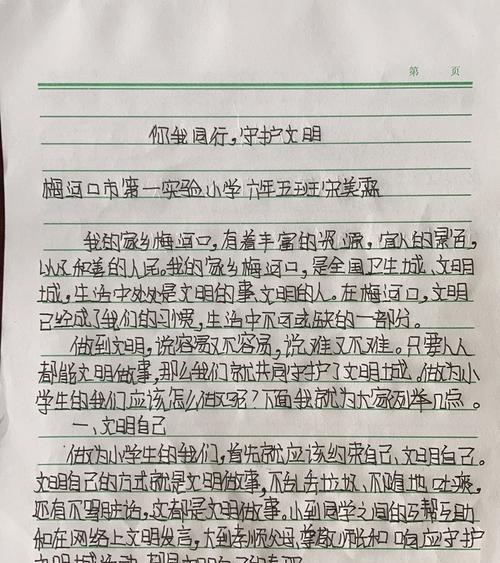 第 页
你我同行，守护文明
梅河口市第一实验小学 六年五班 宋美霖
我的家乡梅河口，有着丰富的资源，宜人的景色，
以及和善的人民。我的家乡梅河口，是全国卫生城、文明
城，生活中处处是文明的事、文明的人。在梅河口，文明
已经成了我们的习惯，生活中不可或缺的一部分。
做到文明，说容易又不容易，说难又不难。只要人人
都能文明做事，那么我们就共同守护了文明城。做为小
学生的我们应该怎么做呢？下面我就为大家列举几点。
一、文明自己
做为小学生的我们，首先就应该约束自己、文明自己。
文明自己的方式就是文明做事，不乱丢垃圾、不随地吐痰，
还有不骂脏话，这都是文明做事。小到同学之间的互帮互助
和在网络上文明发言，大到孝顺父母、尊敬师长和响应守护
文明城活动，都是文明自己的表现